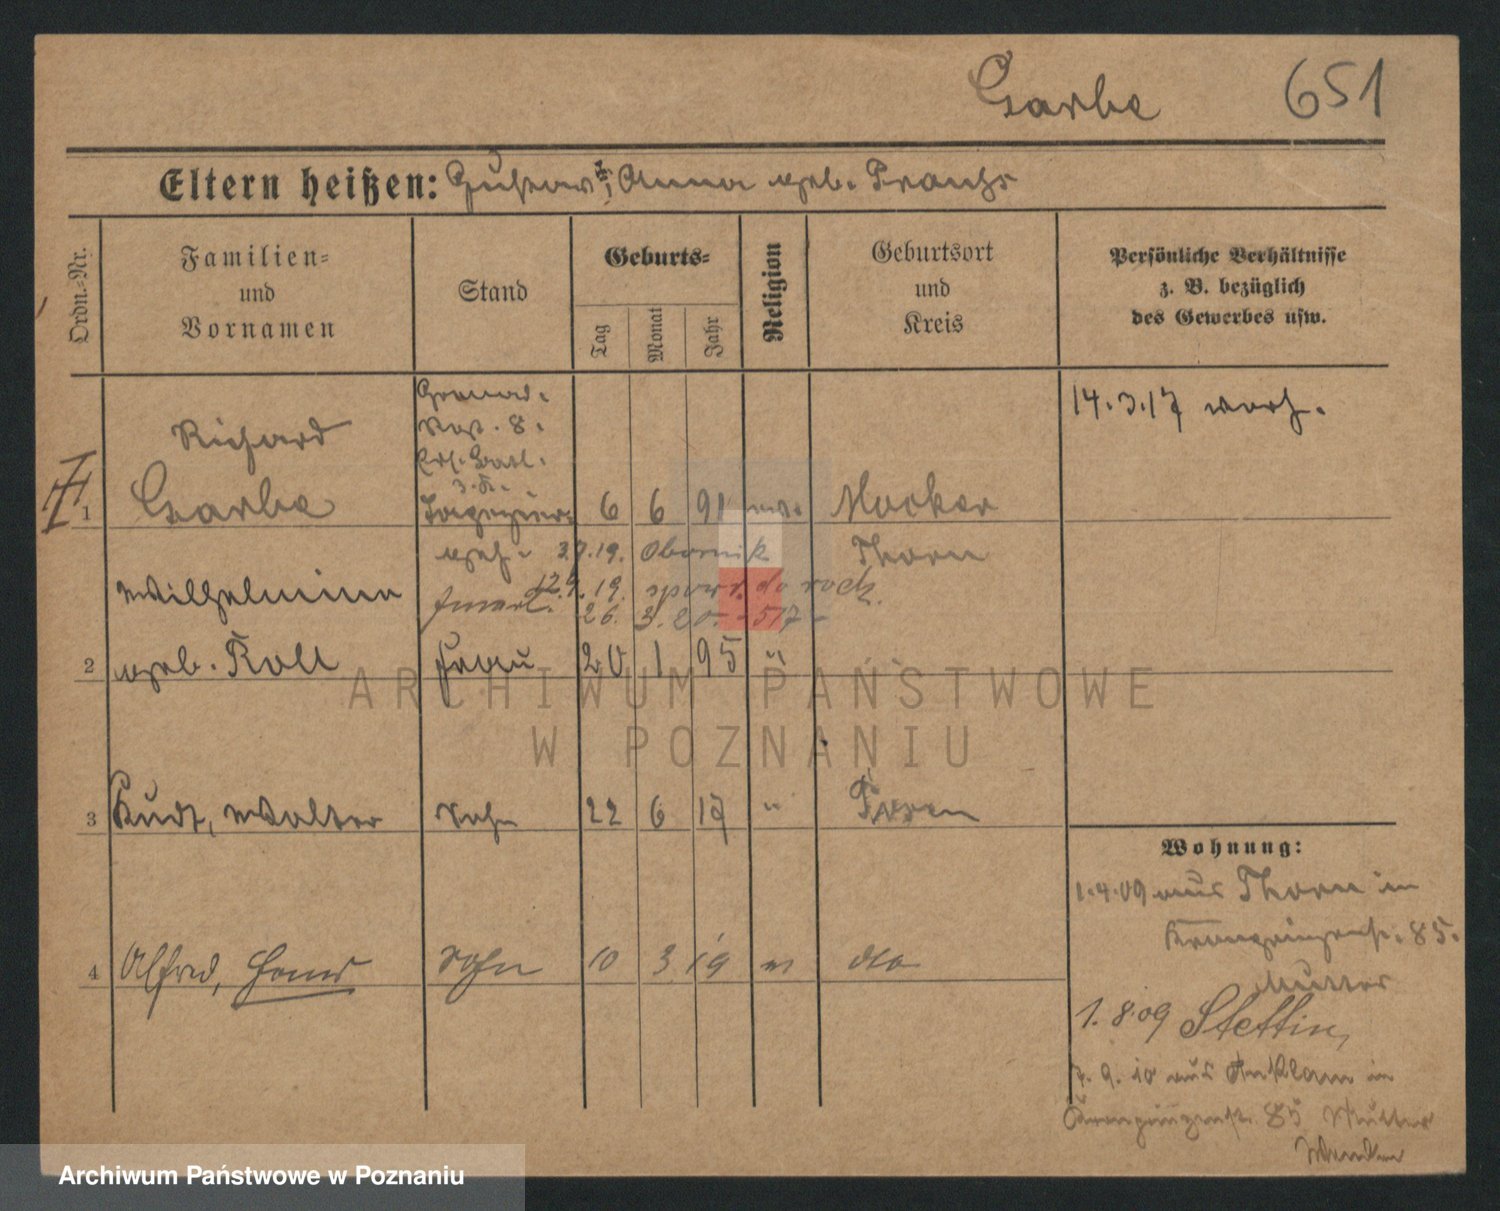 Garbe 651
Eltern heißen: Gustav †, Anna geb.
Ordn.-Nr.
Familien-
und
Vornamen
Stand
Geburts-
Tag
Monat
Jahr
Religion
Geburtsort
und
Kreis
Persönliche Verhältnisse
z. B. bezüglich
des Gewerbes usw.
14.3.17 verh.
Grenad.
Reg. 8.
Richard
Ers. Batl.
z. D.
1 Garbe 6 6 91 ev. Mocker
gesch. 3.7.19. Obornik Thorn
Wilhelmine 12.9.19. do
26. 3. 20.
2 geb. Koll Frau 20 1 95 "
3 Kurt, Walter Sohn 22 6 17 " Posen
4 Alfred, Hans Sohn 10 3 19 do
Wohnung:
1.4.09 aus Thorn in
Kronprinzenstr. 85.
Mutter
1.8.09 Stettin,
7.9.10 aus Anklam in
Kronprinzenstr. 85 Mutter
ARCHIWUM PAŃSTWOWE
W POZNANIU
Archiwum Państwowe w Poznaniu